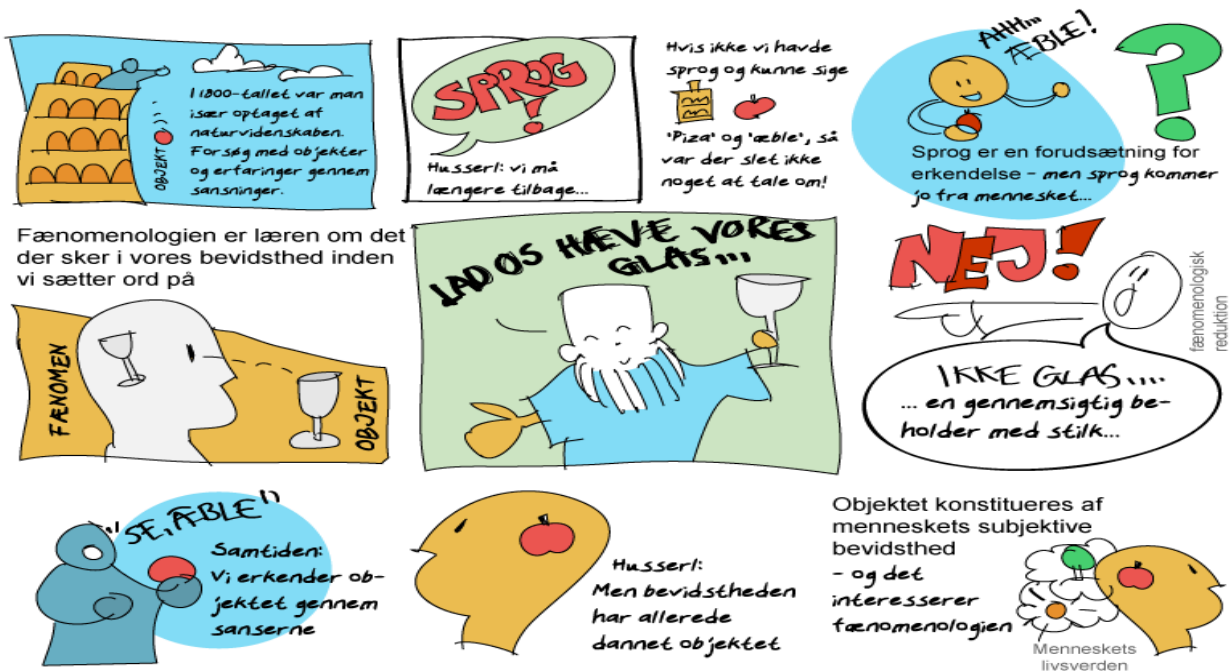 I 1800-tallet var man
især optaget af
naturvidenskaben.
Forsøg med objekter
og erfaringer gennem
sansninger.
OBJEKT
SPROG!
Husserl: vi må
længere tilbage...
Hvis ikke vi havde
sprog og kunne sige
'Piza' og 'æble', så
var der slet ikke
noget at tale om!
AHH...
ÆBLE!
?
Sprog er en forudsætning for
erkendelse - men sprog kommer
jo fra mennesket...
Fænomenologien er læren om det
der sker i vores bevidsthed inden
vi sætter ord på
FÆNOMEN
OBJEKT
LAD OS HÆVE VORES
GLAS...
NEJ!
fænomenologisk
reduktion
IKKE GLAS....
... en gennemsigtig be-
holder med stilk...
"SE, ÆBLE"
Samtiden:
Vi erkender ob-
jektet gennem
sanserne
Husserl:
Men bevidstheden
har allerede
dannet objektet
Objektet konstitueres af
menneskets subjektive
bevidsthed
- og det
interesserer
fænomenologien
Menneskets
livsverden